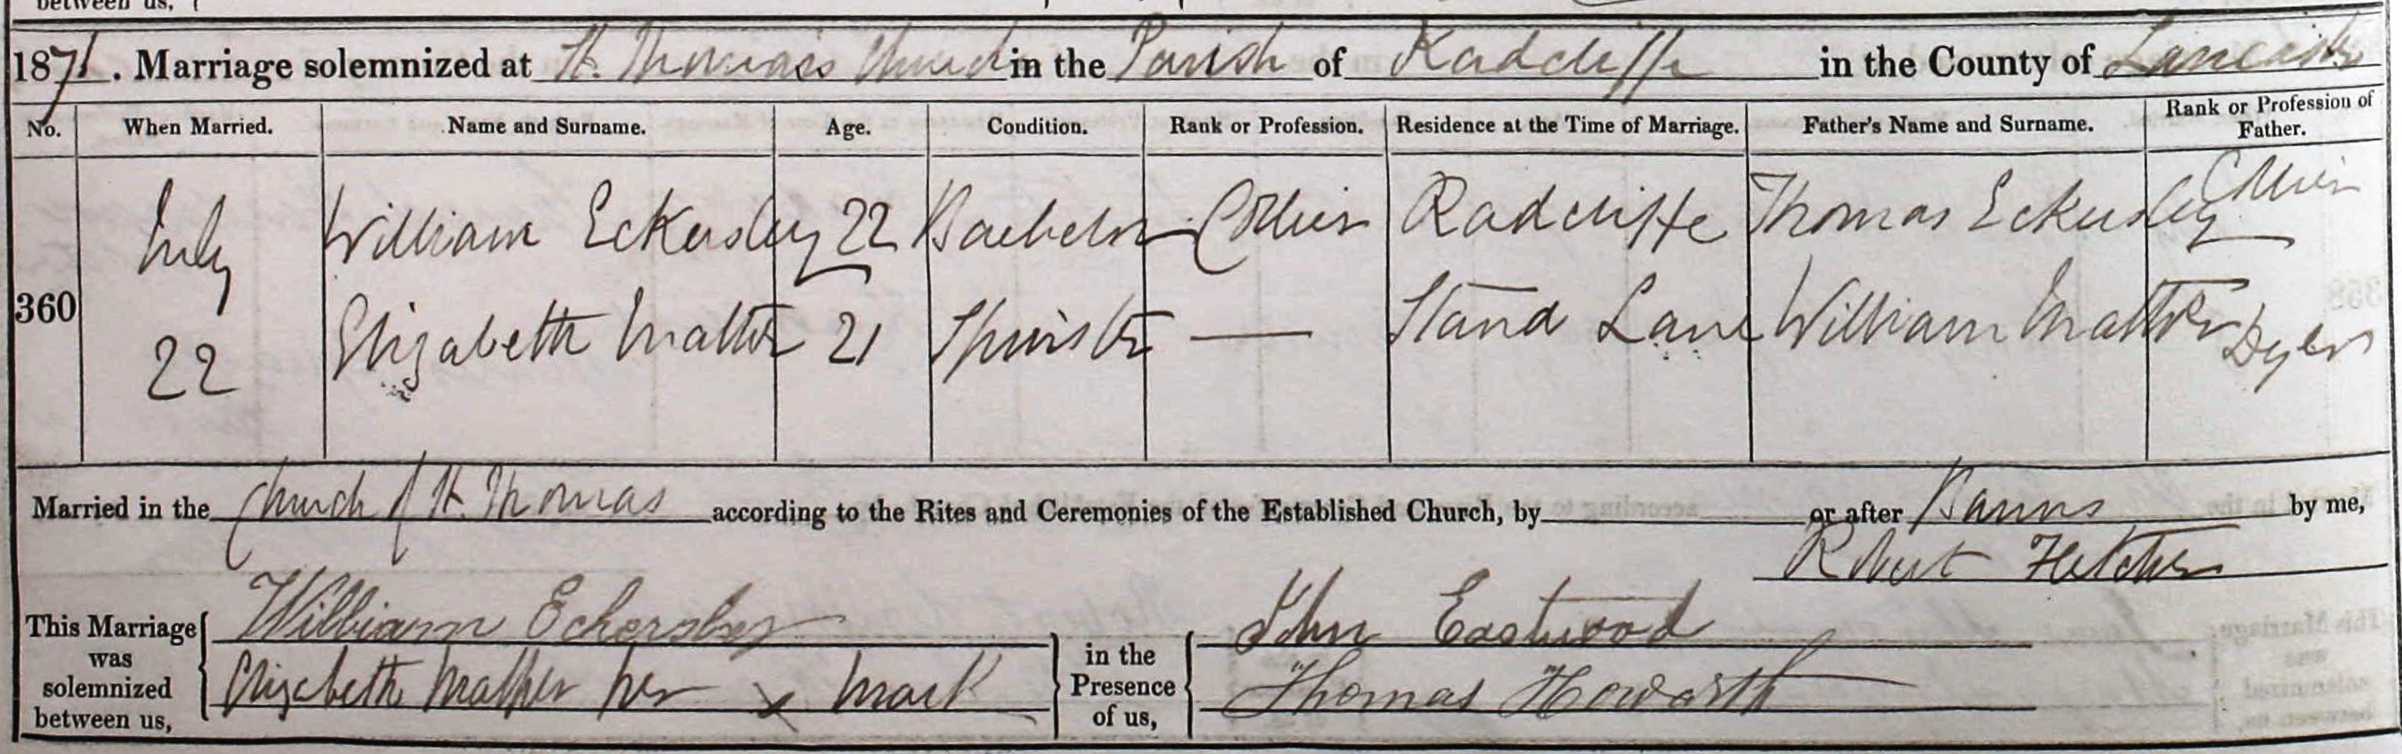 between us,
1871. Marriage solemnized at St. Thomas's Church in the Parish of Radcliffe in the County of Lancaster
No. When Married. Name and Surname. Age. Condition. Rank or Profession. Residence at the Time of Marriage. Father's Name and Surname. Rank or Profession of Father.
360 July 22 William Eckersley 22 Bachelor Collier Radcliffe Thomas Eckersley Collier
Elizabeth Mather 21 Spinster — Stand Lane William Mather Dyer
Married in the Church of St. Thomas according to the Rites and Ceremonies of the Established Church, by or after Banns by me,
Robert Fletcher
This Marriage was solemnized between us, William Eckersley in the Presence of us, John Eastwood
Elizabeth Mather her x mark Thomas Howarth